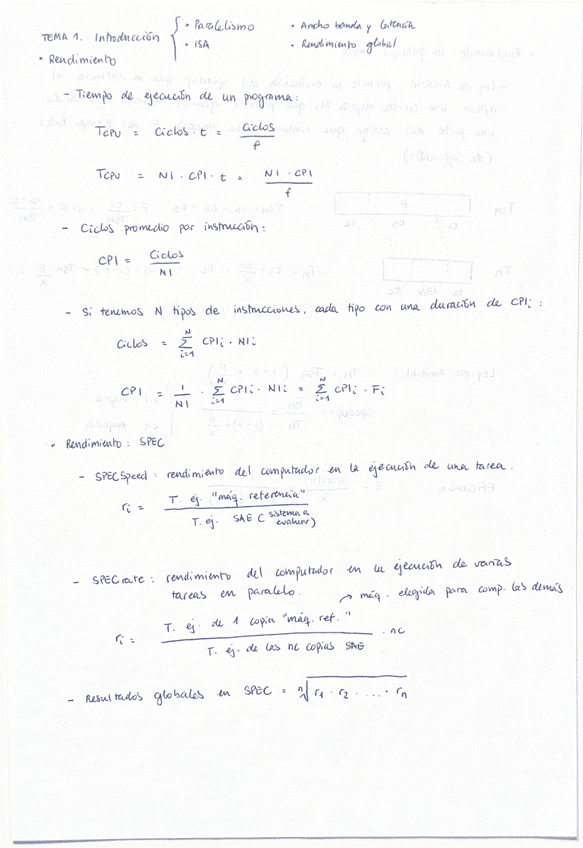 TEMA 1. Introducción { • Paralelismo • Ancho banda y latencia
• ISA • Rendimiento global
• Rendimiento
- Tiempo de ejecución de un programa:
TCPU = Ciclos · t = Ciclos / f
TCPU = NI · CPI · t = NI · CPI / f
- Ciclos promedio por instrucción:
CPI = Ciclos / NI
- Si tenemos N tipos de instrucciones, cada tipo con una duración de CPIi:
Ciclos = Σ(i=1..N) CPIi · NIi
CPI = 1/NI · Σ(i=1..N) CPIi · NIi = Σ(i=1..N) CPIi · Fi
• Rendimiento: SPEC
- SPECSpeed: rendimiento del computador en la ejecución de una tarea.
ri = T. ej. "máq. referencia" / T. ej. SAE (sistema a evaluar)
- SPECrate: rendimiento del computador en la ejecución de varias
tareas en paralelo.
→ máq. elegida para comp. las demás
ri = T. ej. de 1 copia "máq. ret." / T. ej. de las nc copias SAE · nc
- Resultados globales en SPEC = ⁿ√(r1 · r2 · ... · rn)